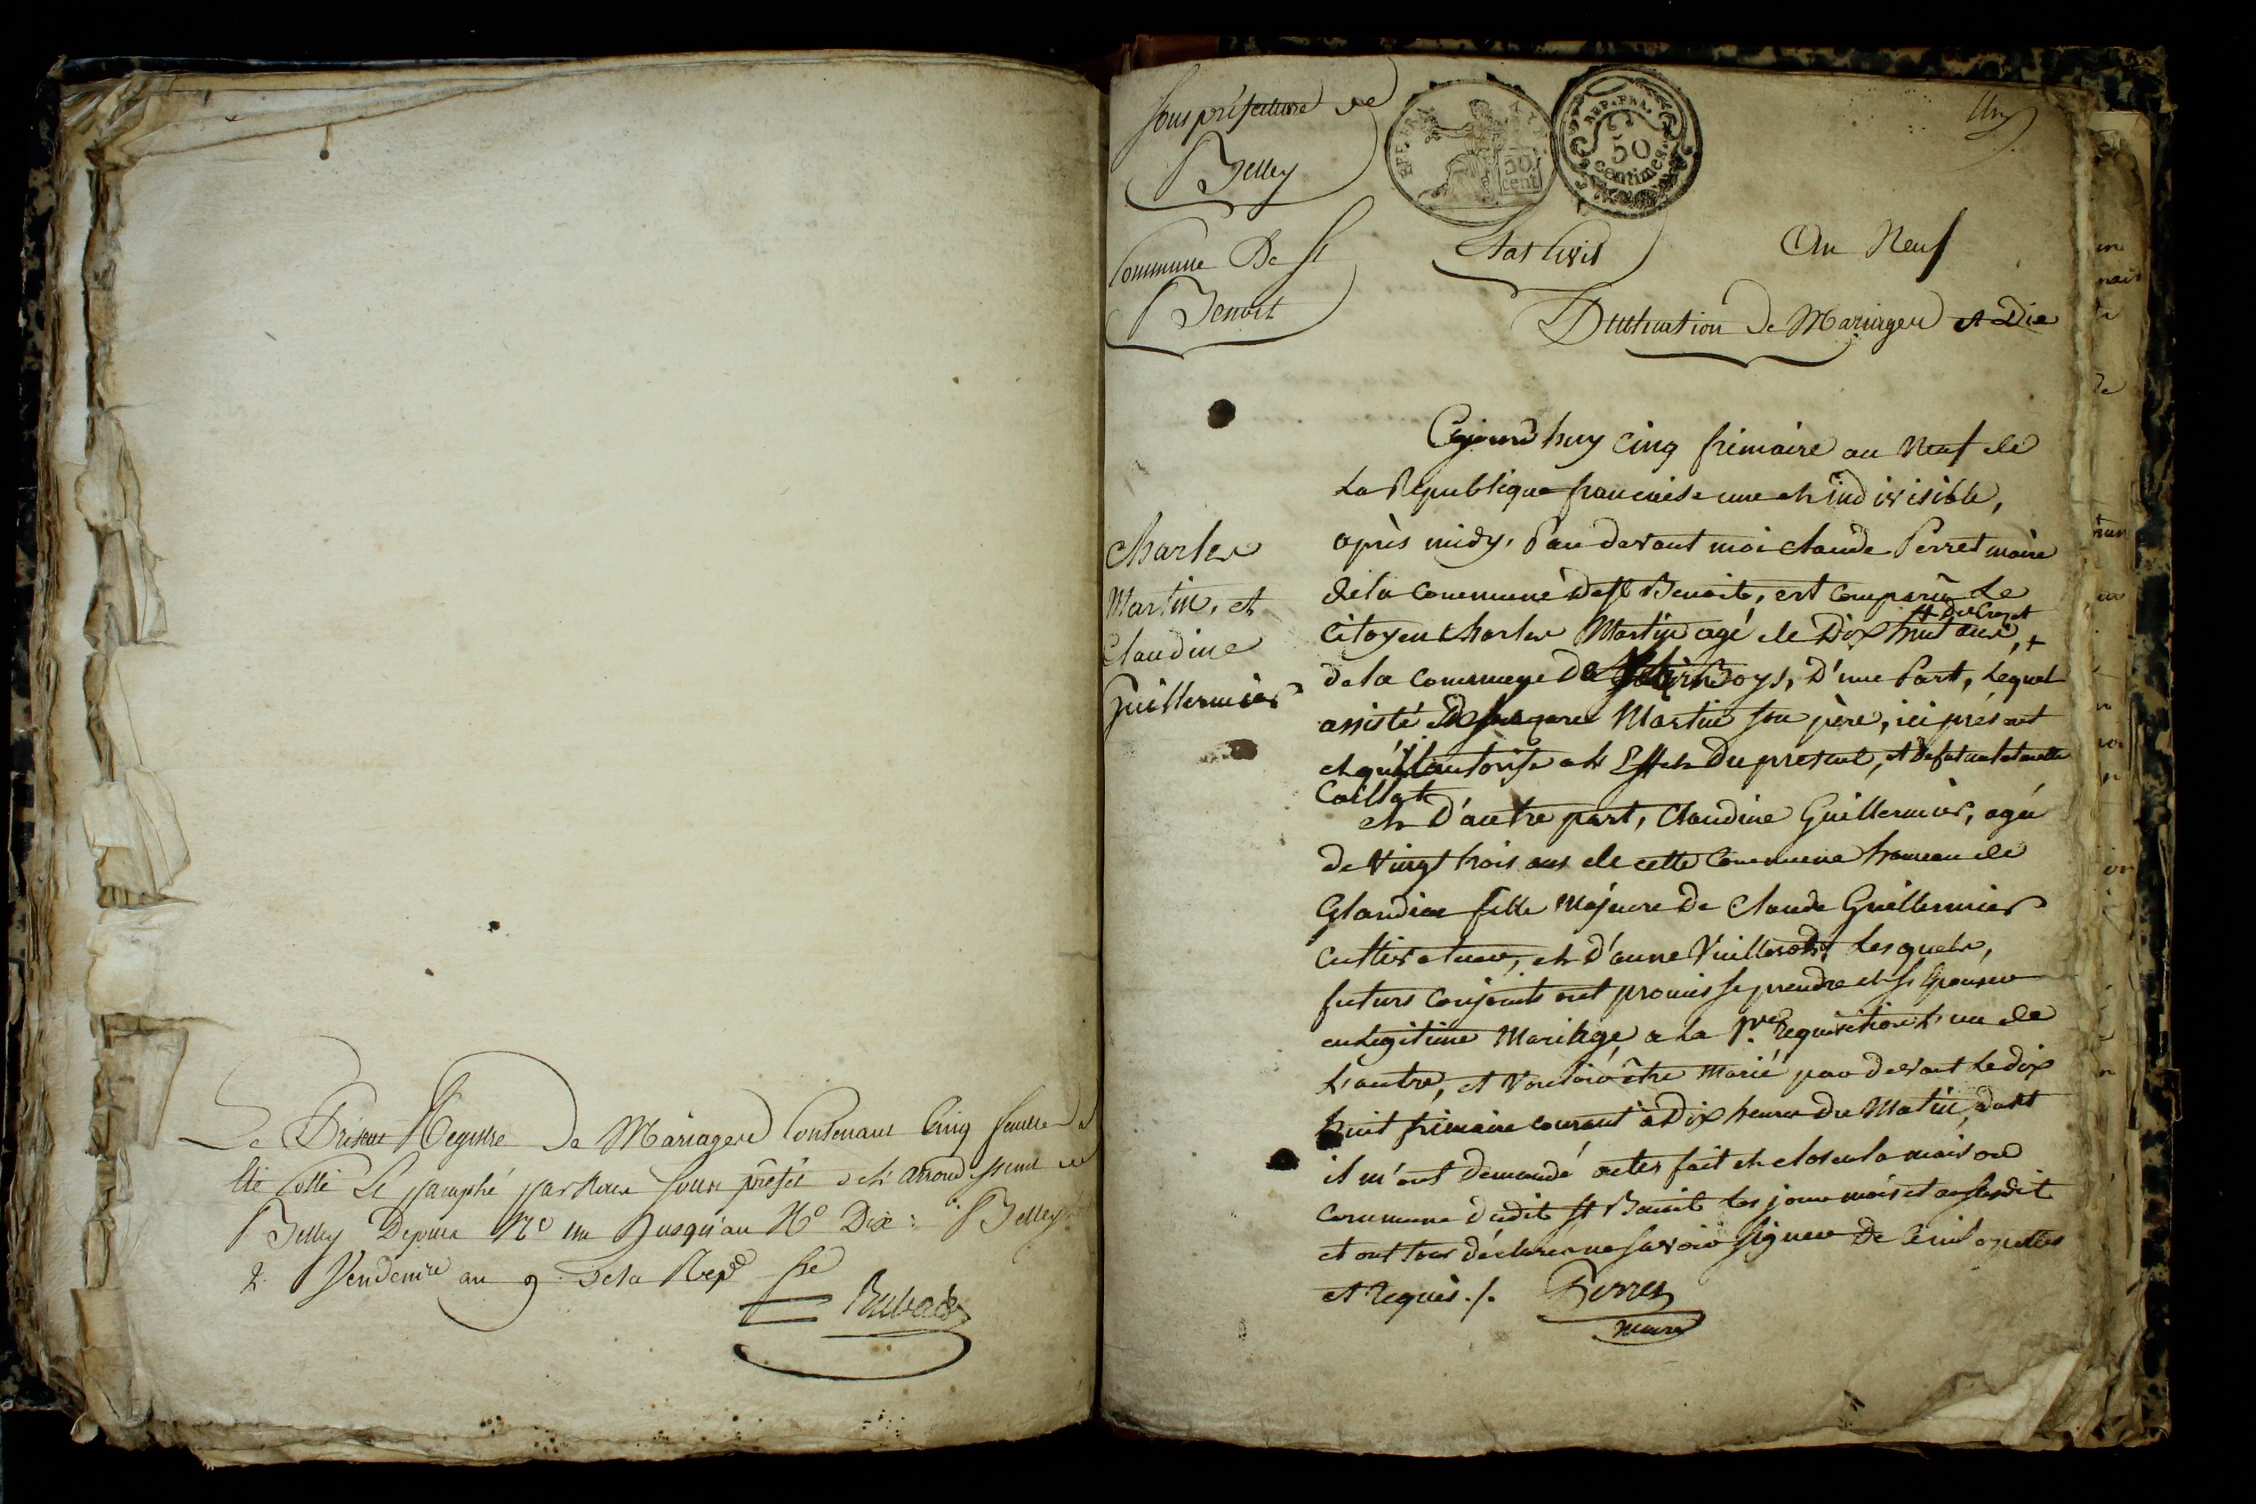 Le Present Registre De Mariages Contenant Cinq feuilles a
été Cotté Et paraphé par Nous sous préfet de l'arrondissement de
Belley Depuis N° un Jusqu'au N° Dix : Belley
2 Vendemre an 9 De la Repe fse
sous préfecture de
Belley
Commune De St
Benoit
REP. FRA.
50
cent
REP. FRA.
50
centimes
Un
Etat Civil
An Neuf
De Mariages et Di
Charles
Martin, et
Claudine
Guillermier
Cejourd'huy cinq frimaire an Neuf de
La Republique francaise une et indivisible,
après midy, Par devant moi Claude Perret maire
de la Commune de St Benoit, est comparu Le
Citoyen Charles Martin agé de Dix huit ans, +
de la commune De D'une Part, Lequel
assisté De Martin son père, ici présent
et qui L'autorise a L'Effet Du present, et Defunte
Caillat
et D'autre part, Claudine Guillermier, agée
de Vingt trois ans de cette Commune hameau de
Glandieu fille Majeure De Claude Guillermier
Cultivateur, et D'anne Lesquels,
futurs Conjoints ont promis se prendre et s'Epouser
en Legitime Mariage a La Pre requisition L'un de
L'autre, et Vouloir être Marié par devant Le dix
huit frimaire courant à Dix heures Du Matin, dont
il m'ont Demandé actes fait et clos en la maison
Commune dudit St Benoit les jour mois et an susdit
et ont tous déclarés ne savoir signer De
et Requis ./. Perret
maire